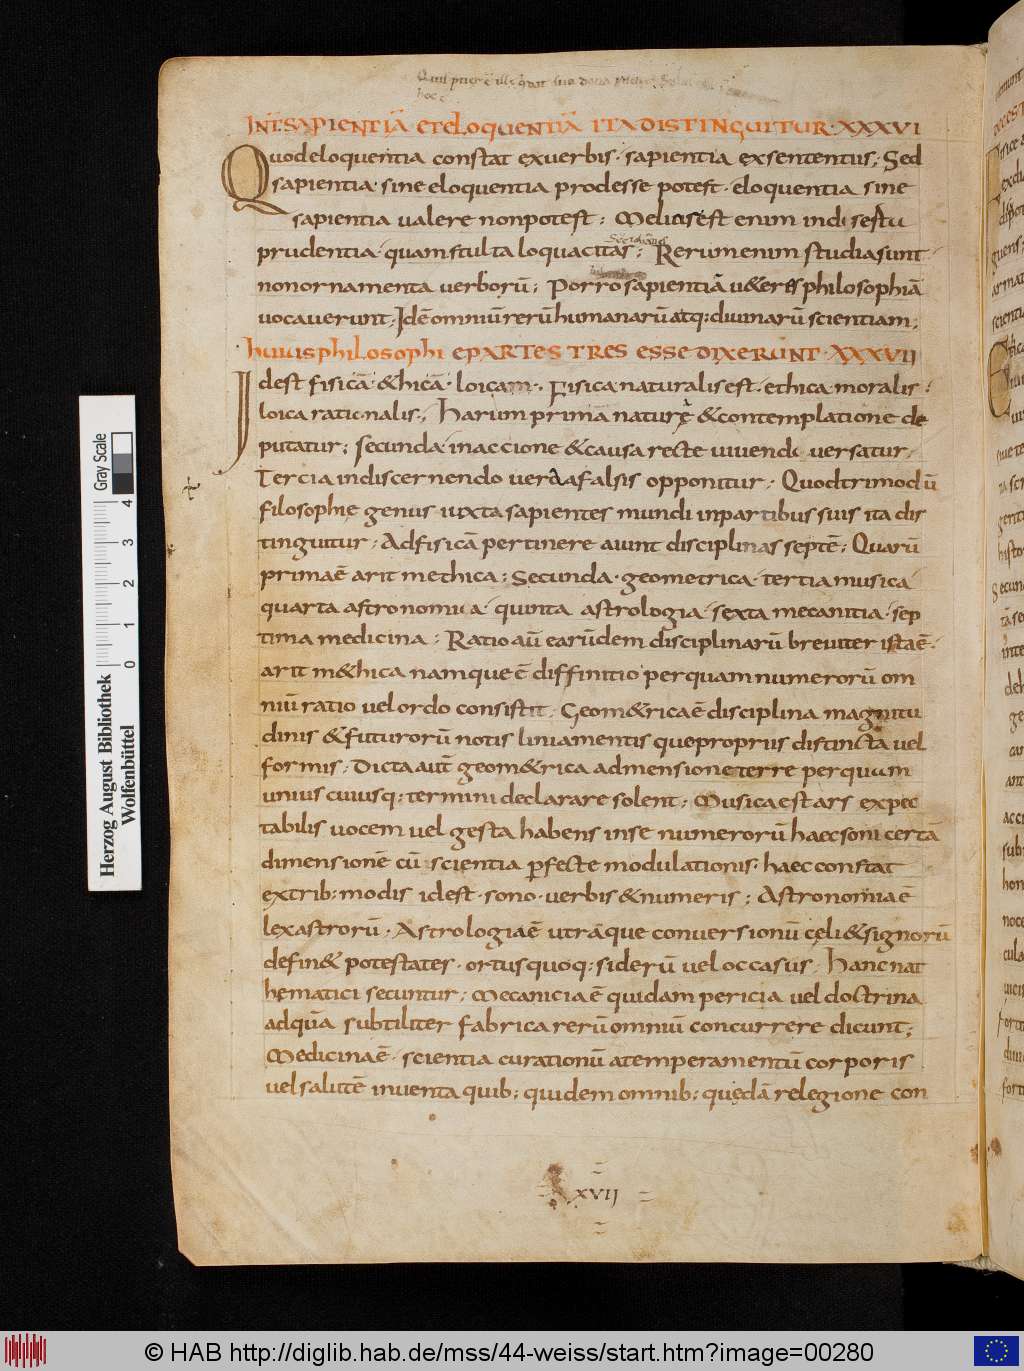 hoc
INT SAPIENTIĀ ET ELOQUENTIĀ ITA DISTINGUITUR · XXXVI
Quod eloquentia constat ex verbis · sapientia ex sententiis; Sed
sapientia · sine eloquentia prodesse potest · eloquentia sine
sapientia valere non potest; Melius est enim indisertu
prudentia · quam stulta loquacitas; Rerum enim studia sunt
non ornamenta verborū; Porro sapientiā veteres philosophiā
vocaverunt; Idē omniū rerū humanarū atq: divinarū scientiam;
huius philosophiȩ PARTES TRES ESSE DIXERUNT · XXXVII
Idest fisicā · &hicā · loicam · Fisica naturalis est · ethica moralis ·
loica rationalis; Harum primā naturȩ & contemplatione de
putatur; secunda · in accione & causa recte vivendi versatur;
Tercia in discernendo vera a falsis opponitur; Quod trimodū
filosophiȩ genus iuxta sapientes mundi in partibus suis ita dis
tinguitur; Ad fisicā pertinere aiunt disciplinas septē; Quarū
prima ē arithmethica; Secunda · geometrica · tertia musica
quarta astronomica · quinta astrologia · sexta mecanitia · sep
tima medicina; Ratio aū earūdem disciplinarū breviter ista ē ·
arithm&hica namque ē diffinitio per quam numerorū om
niū ratio vel ordo consistit; Geom&rica ē disciplina magnitu
dinis & futurorū notis liniamentis que propriis distincta vel
formis; Dicta aut geom&rica ad mensione terre per quam
unius cuiusq: termini declarare solent; Musica est ars expec
tabilis vocem vel gesta habens in se numerorū haec soni certā
dimensionē cū scientia pfecte modulationis · haec constat
ex trib: modis idest · sono · verbis & numeris; Astronomia ē
lex astrorū · Astrologia ē utrāque conversionū cȩli & signorū
defin& potestates · ortusquoq: siderū vel occasus; Hanc nat
hematici secuntur; Mecanicia ē quidam pericia vel doctrina
ad quā subtiliter fabrica rerū omniū concurrere dicunt;
Medicina ē · scientia curationū a temperamentū corporis
vel salutē inventa quib: quidem omnib: quȩdā relegione con
XVII
Herzog August Bibliothek
Wolfenbüttel
Gray Scale
0 1 2 3 4
© HAB http://diglib.hab.de/mss/44-weiss/start.htm?image=00280